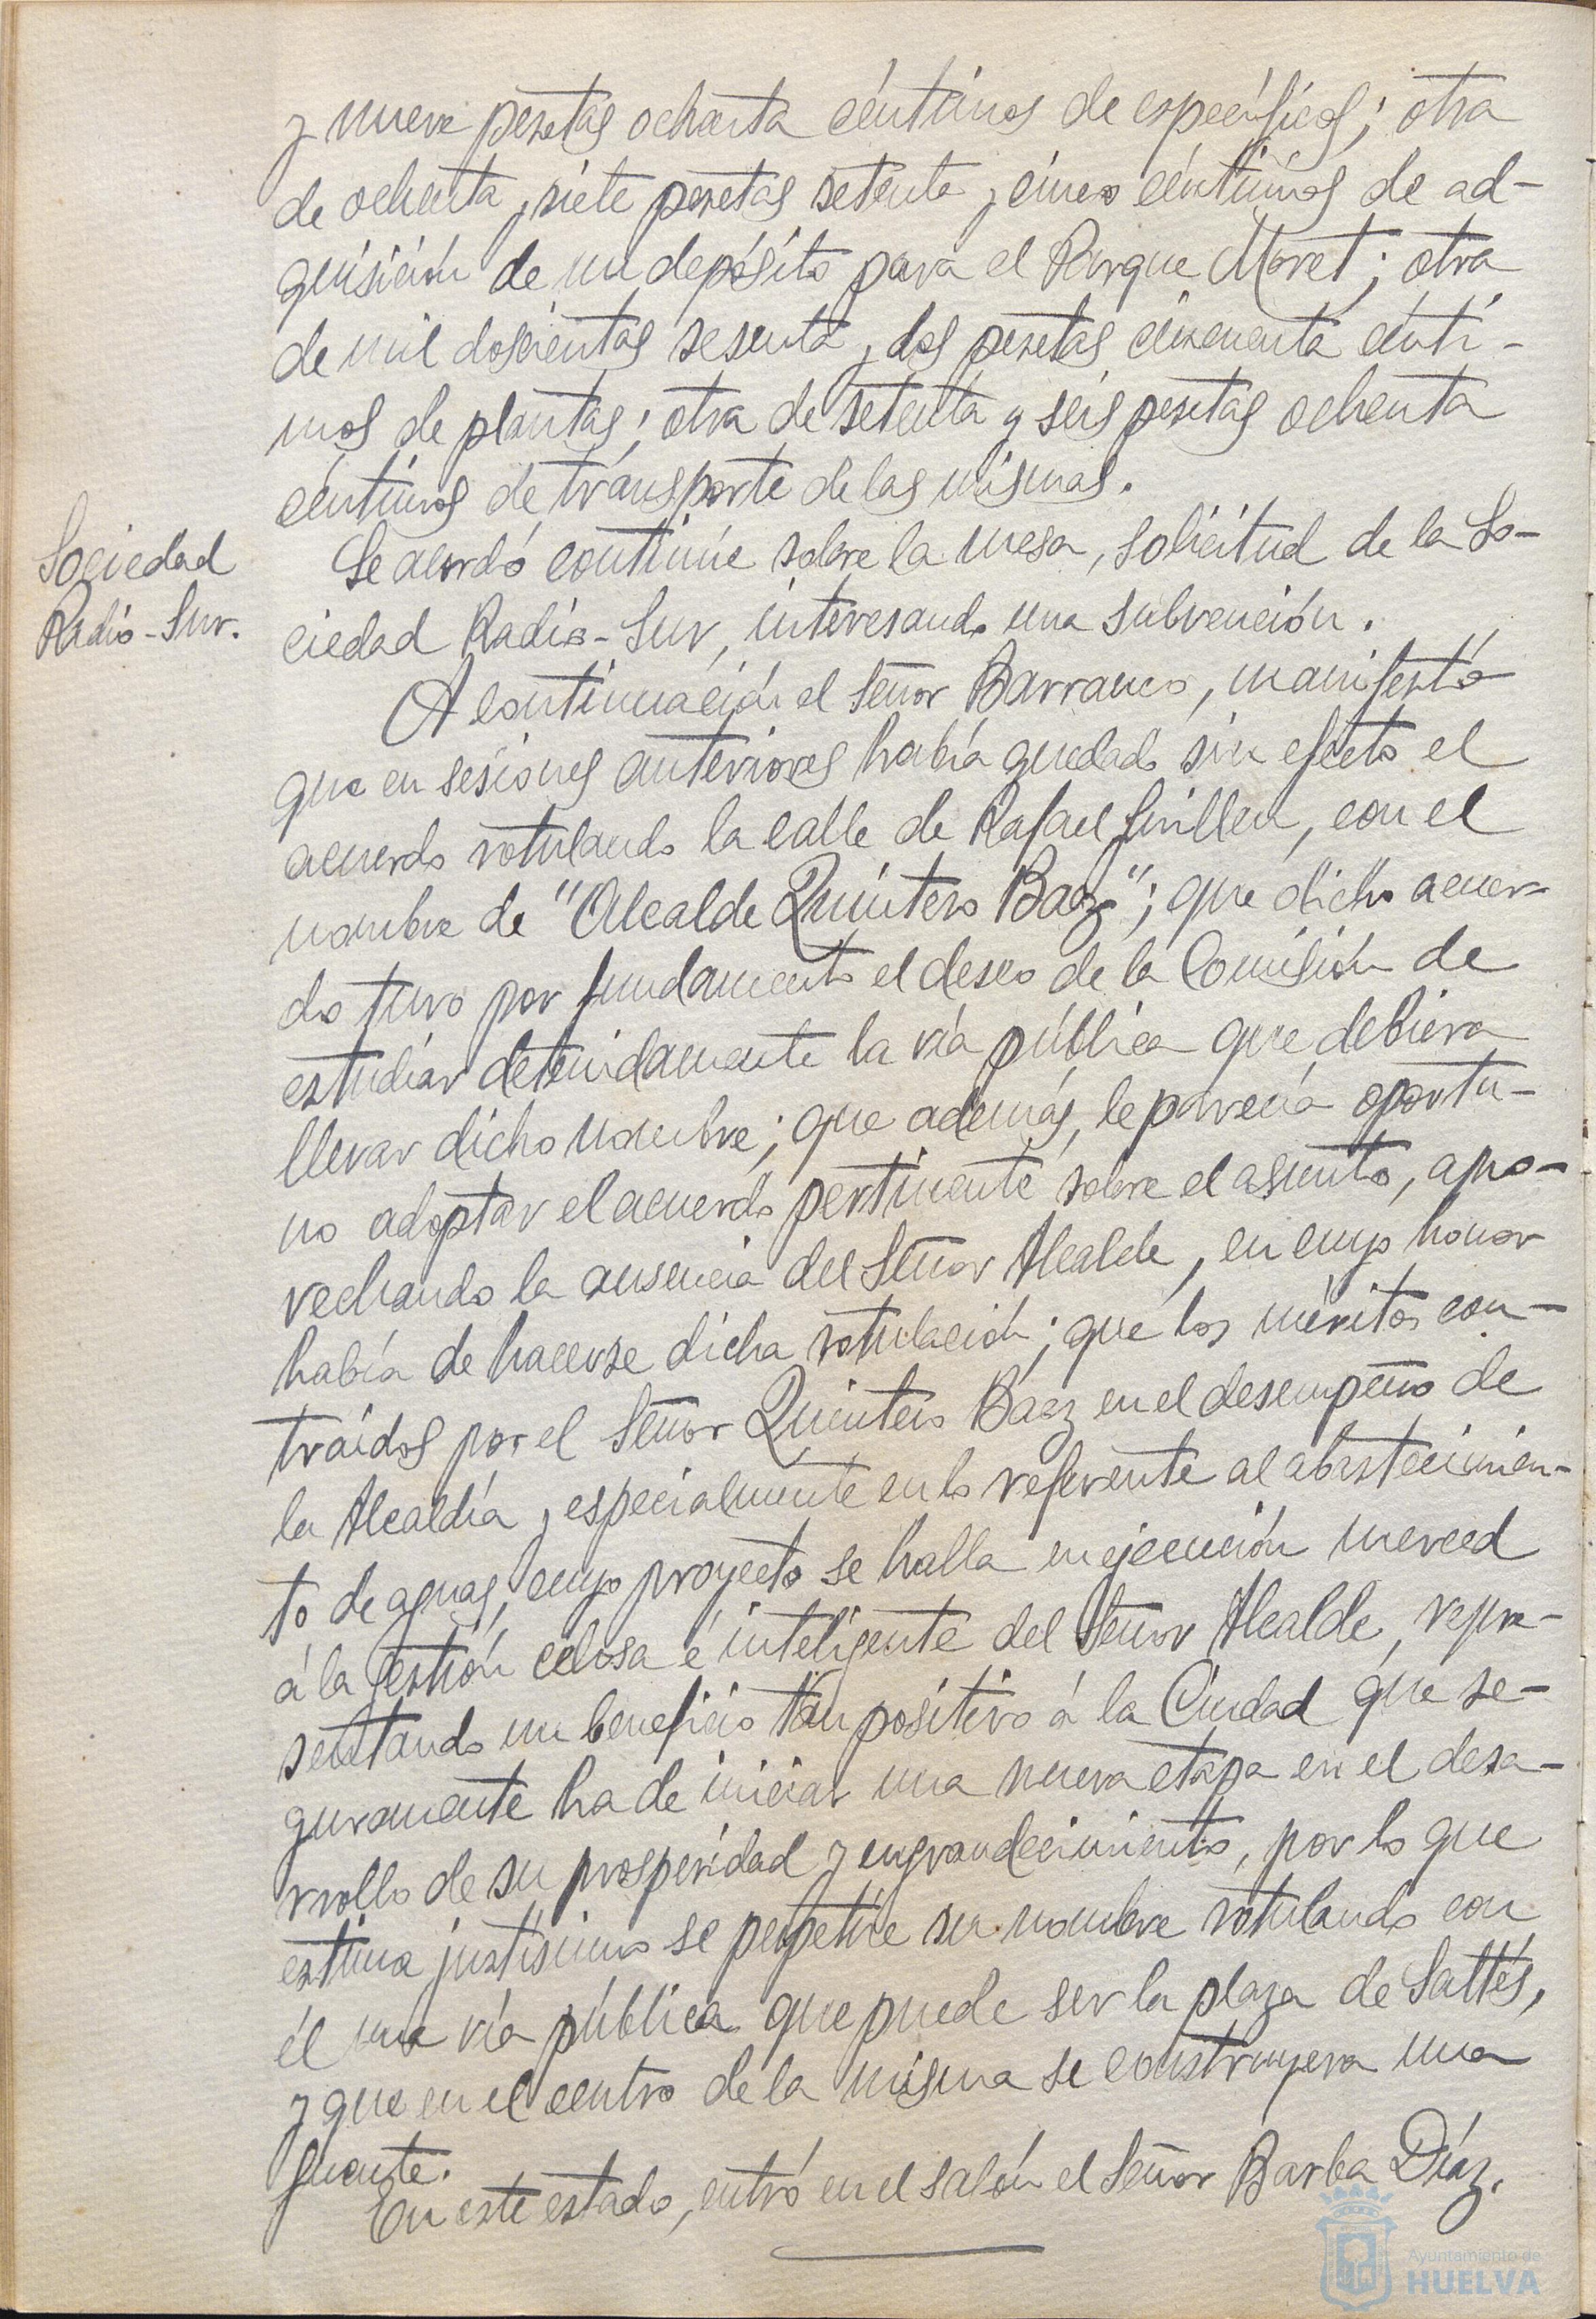 y nueve pesetas ochenta céntimos de específicos; otra
de ochenta y siete pesetas setenta y cinco céntimos de ad-
quisición de un depósito para el Parque Moret; otra
de mil doscientas sesenta y dos pesetas cincuenta cénti-
mos de plantas; otra de setenta y seis pesetas ochenta
céntimos de transporte de las mismas.
Sociedad
Radio-Sur.
Se acordó continúe sobre la mesa, solicitud de la So-
ciedad Radio-Sur, interesando una subvención.
A continuación el Señor Barranco, manifestó
que en sesiones anteriores había quedado sin efecto el
acuerdo rotulando la calle de Rafael Guillen, con el
nombre de "Alcalde Quintero Baez"; que dicho acuer-
do tuvo por fundamento el deseo de la Comisión de
estudiar detenidamente la vía pública que debiera
llevar dicho nombre; que además, le parecía oportu-
no adoptar el acuerdo pertinente sobre el asunto, apro-
vechando la ausencia del Señor Alcalde, en cuyo honor
había de hacerse dicha rotulación; que los méritos con-
traídos por el Señor Quintero Báez en el desempeño de
la Alcaldía y especialmente en lo referente al abastecimien-
to de aguas, cuyo proyecto se halla en ejecución merced
á la gestión celosa é inteligente del Señor Alcalde, repre-
sentando un beneficio tan positivo á la Ciudad que se-
guramente ha de iniciar una nueva etapa en el desa-
rrollo de su prosperidad y engrandecimiento, por lo que
estima justísimo se perpetúe su nombre rotulando con
él una vía pública que puede ser la plaza de Saltés,
y que en el centro de la misma se construyera una
fuente.
En este estado, entró en el salón el Señor Barba Díaz.
Ayuntamiento de
HUELVA